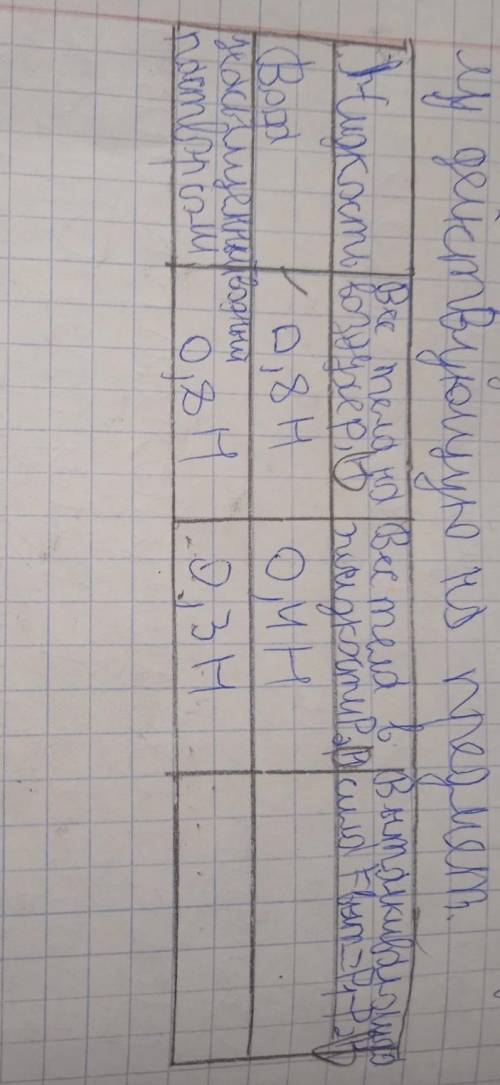 му действующую на предмет.
Жидкость
Вес тела на
воздухе P₁, Н
Вес тела в
жидкости P₂, Н
Выталкивающая
сила Fвыт=P₁-P₂, Н
Вода
0,8 Н
0,4 Н
насыщенный водный
раствор соли
0,8 Н
0,3 Н